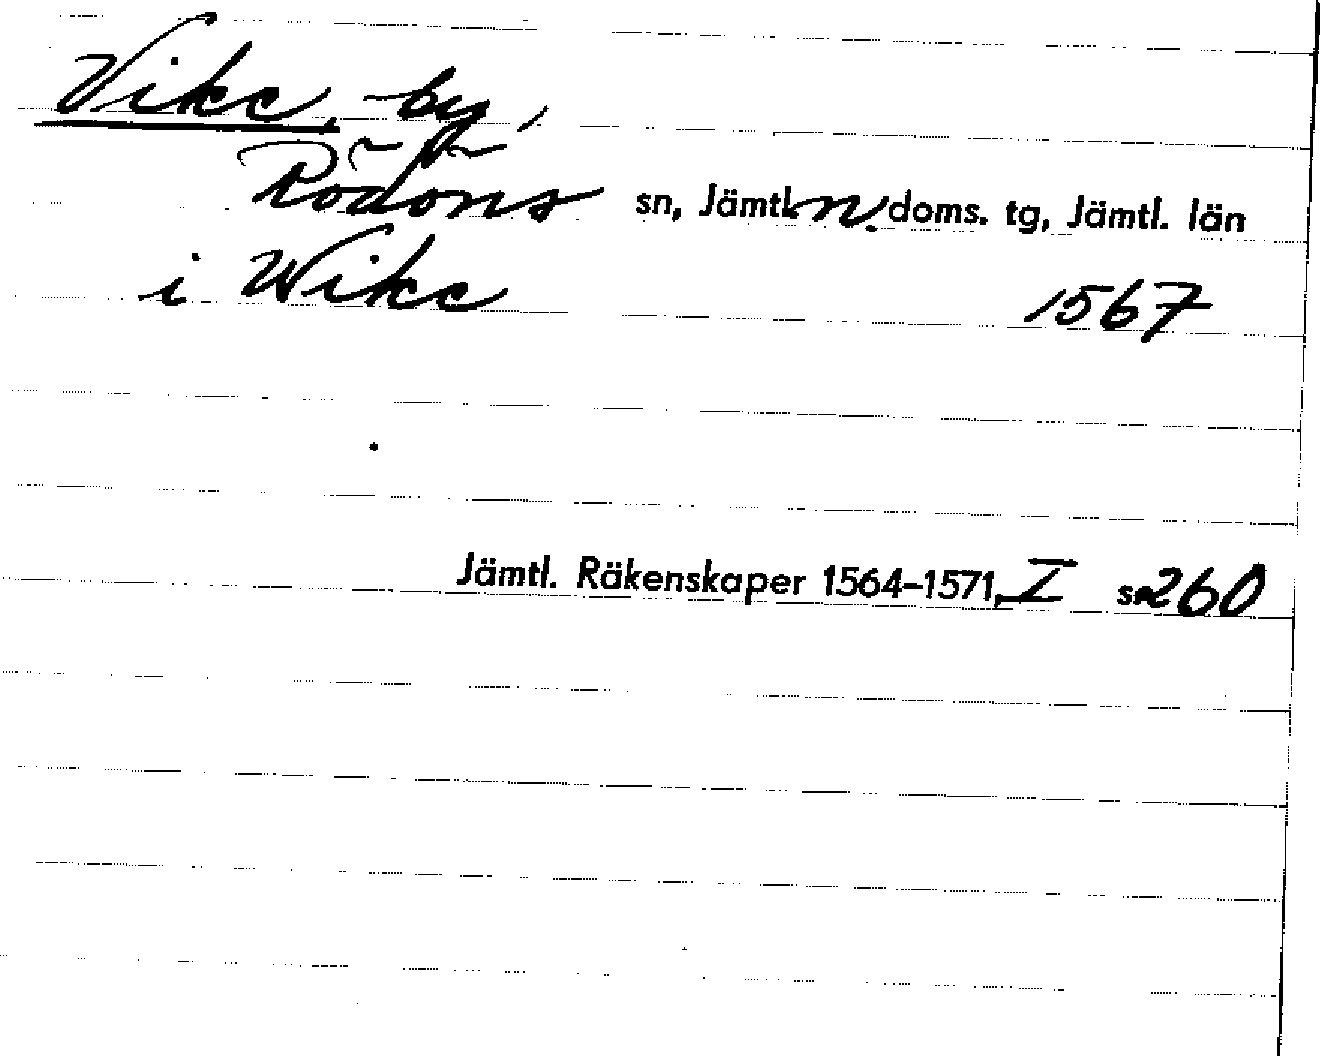 Vike, by,
Rödöns sn, Jämtl. n. doms. tg, Jämtl. län
i Wike 1567
Jämtl. Räkenskaper 1564–1571, I s. 260